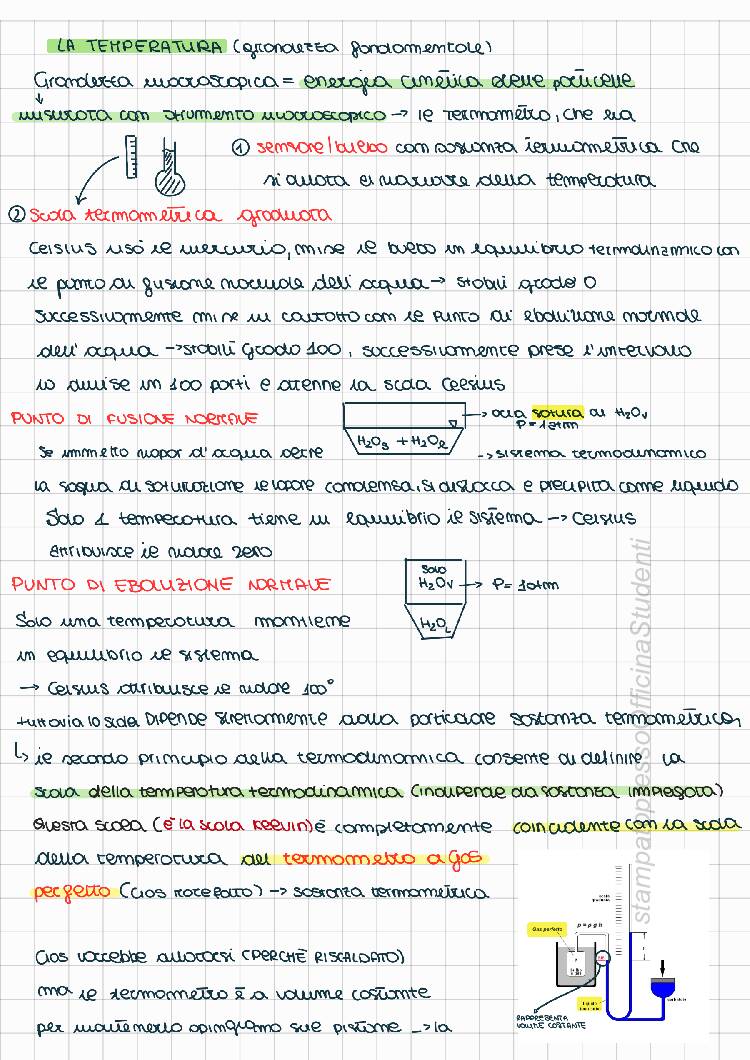 LA TEMPERATURA (grandezza fondamentale)
Grandezza macroscopica = energia cinetica delle particelle
misurata con strumento macroscopico → il termometro, che ha
① sensore/bulbo con sostanza termometrica che
si dilata al variare della temperatura
② Scala termometrica graduata
Celsius usò il mercurio, mise il bulbo in equilibrio termodinamico con
il punto di fusione normale dell'acqua → stabilì grado 0
successivamente mise in contatto con il punto di ebollizione normale
dell'acqua → stabilì grado 100, successivamente prese l'intervallo
lo divise in 100 parti e ottenne la scala Celsius
PUNTO DI FUSIONE NORMALE
→ aria satura di H₂Ov
P = 1atm
H₂Os + H₂Ol
Se immetto vapor d'acqua oltre
→ sistema termodinamico
la soglia di saturazione il vapore condensa, si distacca e precipita come liquido
Solo 1 temperatura tiene in equilibrio il sistema → Celsius
attribuisce il valore zero
PUNTO DI EBOLLIZIONE NORMALE
Solo
H₂Ov → P = 1atm
H₂OL
Solo una temperatura mantiene
in equilibrio il sistema
→ Celsius attribuisce il valore 100°
tuttavia la scala DIPENDE strettamente dalla particolare sostanza termometrica,
↳ il secondo principio della termodinamica consente di definire la
scala della temperatura termodinamica (indipende da sostanza impiegata)
Questa scala (è la scala Kelvin) è completamente coincidente con la scala
della temperatura del termometro a gas
perfetto (Gas rarefatto) → sostanza termometrica
Gas vorrebbe dilatarsi (PERCHÈ RISCALDATO)
ma il termometro è a volume costante
per mantenerlo spingiamo sul pistone → la
Gas perfetto
p = ρ g h
RAPPRESENTA
VOLUME COSTANTE
stampatoppessoOfficinaStudenti